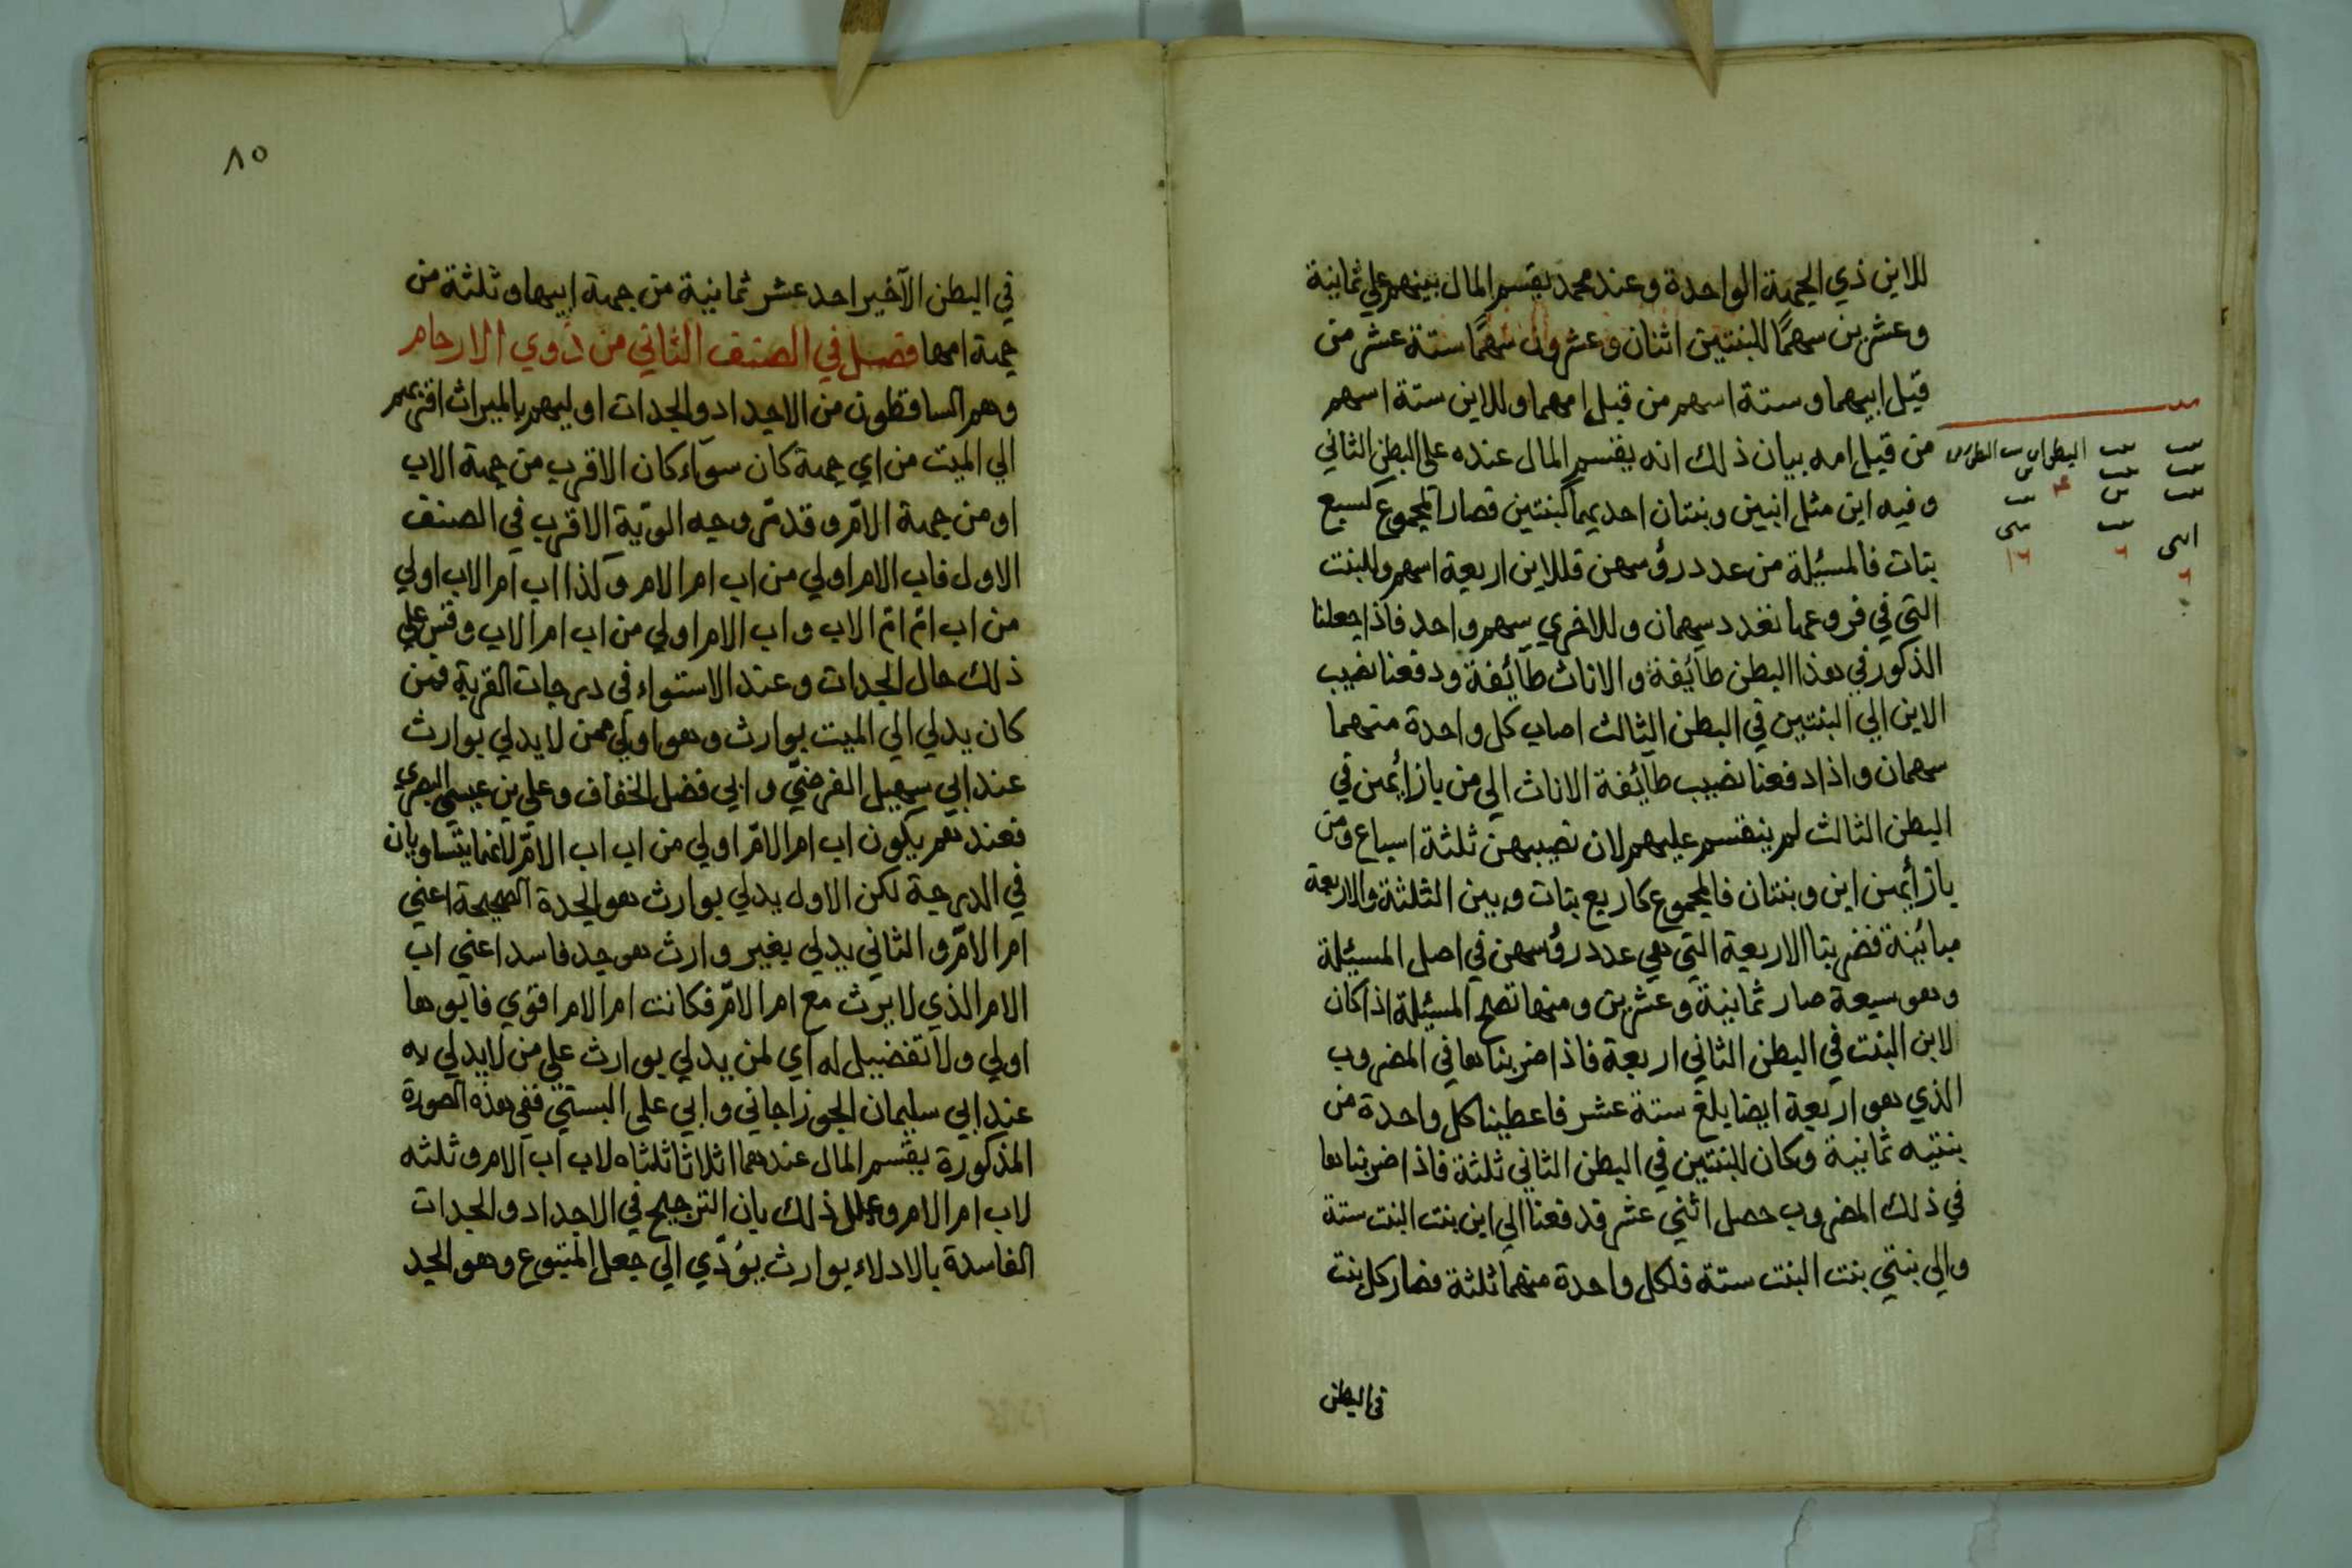 للابن ذي الجهة الواحدة وعند محمد يقسم المال بينهم علي ثمانية
وعشرين سهمًا للبنتين اثنان وعشرون سهمًا ستة عشر من
قبل ابيهما وستة اسهم من قبل امهما وللابن ستة اسهم
من قبل امه بيان ذلك انه يقسم المال عنده علي البطن الثاني
وفيه ابن مثل ابنين وبنتان احديهما كبنتين فصار المجموع كسبع
بنات فالمسئلة من عدد رؤسهن فللابن اربعة اسهم وللبنت
التي في فروعها تعدد سهمان وللاخري سهم واحد فاذا جعلنا
الذكور في هذا البطن طآئفة والاناث طآئفة ودفعنا نصيب
الابن الي البنتين في البطن الثالث اصاب كل واحدة منهما
سهمان واذا دفعنا نصيب طآئفة الاناث الي من بازائهن في
البطن الثالث لم ينقسم عليهم لان نصيبهن ثلثة اسباع ومن
بازائهن ابن وبنتان فالمجموع كاربع بنات وبين الثلثة والاربعة
مبائنة فضربنا الاربعة التي هي عدد رؤسهن في اصل المسئلة
وهو سبعة صار ثمانية وعشرين ومنها تصح المسئلة اذ كان
لابن البنت في البطن الثاني اربعة فاذا ضربناها في المضروب
الذي هو اربعة ايضا يلغ ستة عشر فاعطينا كل واحدة من
بنتيه ثمانية وكان للبنتين في البطن الثاني ثلثة فاذا ضربناها
في ذلك المضروب حصل اثني عشر فدفعنا الي ابن بنت البنت ستة
والي بنتي بنت البنت ستة فلكل واحدة منهما ثلثة فصار كل بنت
في البطن
٨٥
في البطن الآخير احد عشر ثمانية من جهة ابيها وثلثة من
جهة امها فصل في الصنف الثاني من ذوي الارحام
وهم الساقطون من الاجداد والجدات اوليهم بالميراث اقربهم
الي الميت من اي جهة كان سوآء كان الاقرب من جهة الاب
او من جهة الامّ وقد مرّ وجه الويّة الاقرب في الصنف
الاول فاب الام اولي من اب ام الام وكذا اب ام الاب اولي
من اب امّ امّ الاب واب الام اولي من اب ام الاب وقس علي
ذلك حال الجدات وعند الاستواء في درجات القربة فمن
كان يدلي الي الميت بوارث وهو اولي ممن لا يدلي بوارث
عند ابي سهيل الفرضيّ وابي فضل الخفاف وعلي بن عيسي البصري
فعندهم يكون اب ام الامّ اولي من اب اب الامّ لانهما يتساويان
في الدرجة لكن الاول يدلي بوارث هو الجدة الصحيحة اعني
ام الامّ والثاني يدلي بغير وارث هو جد فاسد اعني اب
الام الذي لا يرث مع ام الامّ فكانت ام الام اقوي فابوها
اولي ولا تفضيل له اي لمن يدلي بوارث علي من لا يدلي به
عند ابي سليمان الجوزجاني وابي علي البستي ففي هذه الصورة
المذكورة يقسم المال عندهما اثلاثا ثلثاه لاب اب الام وثلثه
لاب ام الام وعلل ذلك بان الترجيح في الاجداد والجدات
الفاسدة بالادلاء بوارث يؤدّي الي جعل المتبوع وهو الجد